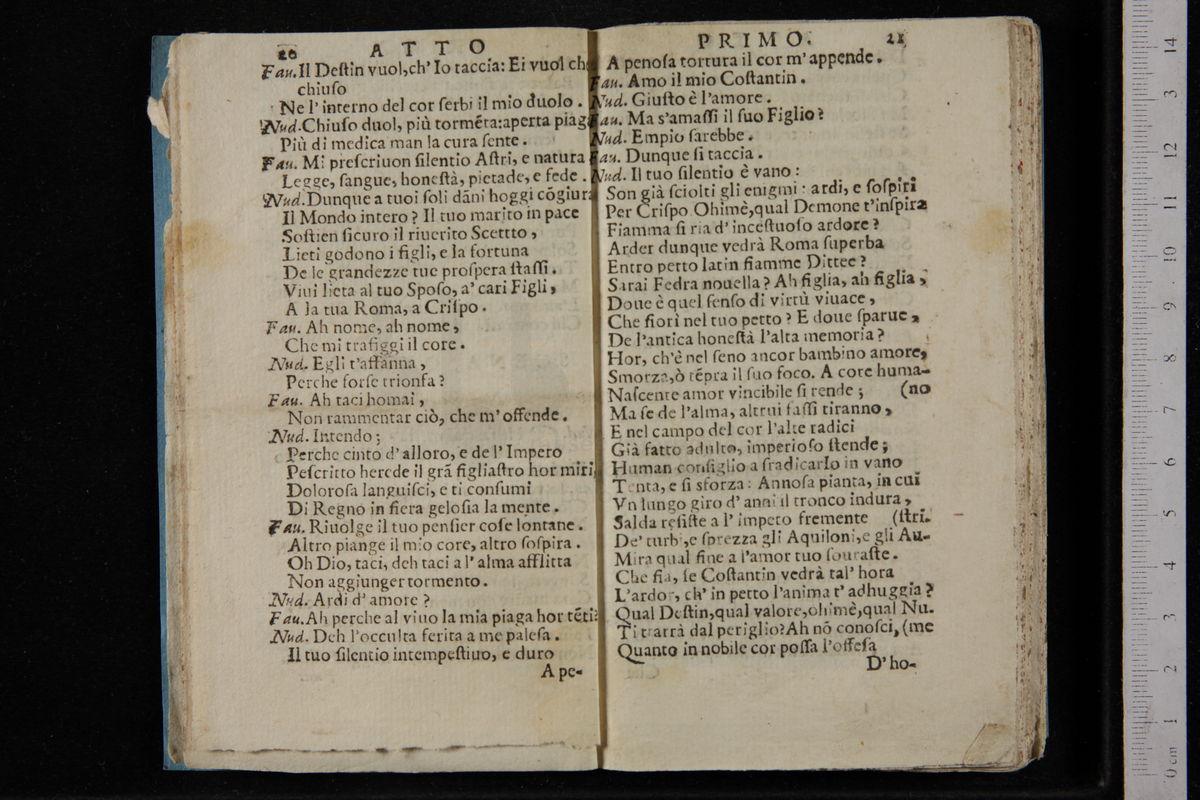 20 ATTO
Fau. Il Deſtin vuol, ch' Io taccia: Ei vuol che
chiuſo
Ne l' interno del cor ſerbi il mio duolo.
Nud. Chiuſo duol, più torméta: aperta piaga
Più di medica man la cura ſente.
Fau. Mi preſcriuon ſilentio Aſtri, e natura
Legge, ſangue, honeſtà, pietade, e fede.
Nud. Dunque a tuoi ſoli dāni hoggi cōgiura
Il Mondo intero? Il tuo marito in pace
Soſtien ſicuro il riuerito Scettto,
Lieti godono i figli, e la fortuna
De le grandezze tue proſpera ſtaſſi.
Viui lieta al tuo Spoſo, a' cari Figli,
A la tua Roma, a Criſpo.
Fau. Ah nome, ah nome,
Che mi trafiggi il core.
Nud. Egli t'affanna,
Perche forſe trionfa?
Fau. Ah taci homai,
Non rammentar ciò, che m' offende.
Nud. Intendo;
Perche cinto d' alloro, e de l' Impero
Peſcritto herede il grā figliaſtro hor miri,
Doloroſa languiſci, e ti conſumi
Di Regno in fiera geloſia la mente.
Fau. Riuolge il tuo penſier coſe lontane.
Altro piange il mio core, altro ſoſpira.
Oh Dio, taci, deh taci a l' alma afflitta
Non aggiunger tormento.
Nud. Ardi d' amore?
Fau. Ah perche al viuo la mia piaga hor tēti?
Nud. Deh l'occulta ferita a me paleſa.
Il tuo ſilentio intempeſtiuo, e duro
A pe-
PRIMO. 21
A penoſa tortura il cor m' appende.
Fau. Amo il mio Coſtantin.
Nud. Giuſto è l'amore.
Fau. Ma s'amaſſi il ſuo Figlio?
Nud. Empio ſarebbe.
Fau. Dunque ſi taccia.
Nud. Il tuo ſilentio è vano:
Son già ſciolti gli enigmi: ardi, e ſoſpiri
Per Criſpo. Ohimè, qual Demone t'inſpira
Fiamma ſi ria d' inceſtuoſo ardore?
Arder dunque vedrà Roma ſuperba
Entro petto latin fiamme Dittee?
Sarai Fedra nouella? Ah figlia, ah figlia,
Doue è quel ſenſo di virtù viuace,
Che fiorì nel tuo petto? E doue ſparue,
De l'antica honeſtà l'alta memoria?
Hor, ch'è nel ſeno ancor bambino amore,
Smorza, ò tēpra il ſuo foco. A core huma-
Naſcente amor vincibile ſi rende; (no
Ma ſe de l'alma, altrui faſſi tiranno,
E nel campo del cor l'alte radici
Già fatto adulto, imperioſo ſtende;
Human conſiglio a ſradicarlo in vano
Tenta, e ſi sforza: Annoſa pianta, in cui
Vn lungo giro d' anni il tronco indura,
Salda reſiſte a l' impeto fremente (ſtri.
De' turbi, e ſprezza gli Aquiloni, e gli Au-
Mira qual fine a l'amor tuo ſouraſte.
Che fia, ſe Coſtantin vedrà tal' hora
L'ardor, ch' in petto l'anima t' adhuggia?
Qual Deſtin, qual valore, ohimè, qual Nu.
Ti trarrà dal periglio? Ah nō conoſci, (me
Quanto in nobile cor poſſa l'offeſa
D' ho-
14
13
12
11
10
9
8
7
6
5
4
3
2
1
0 cm